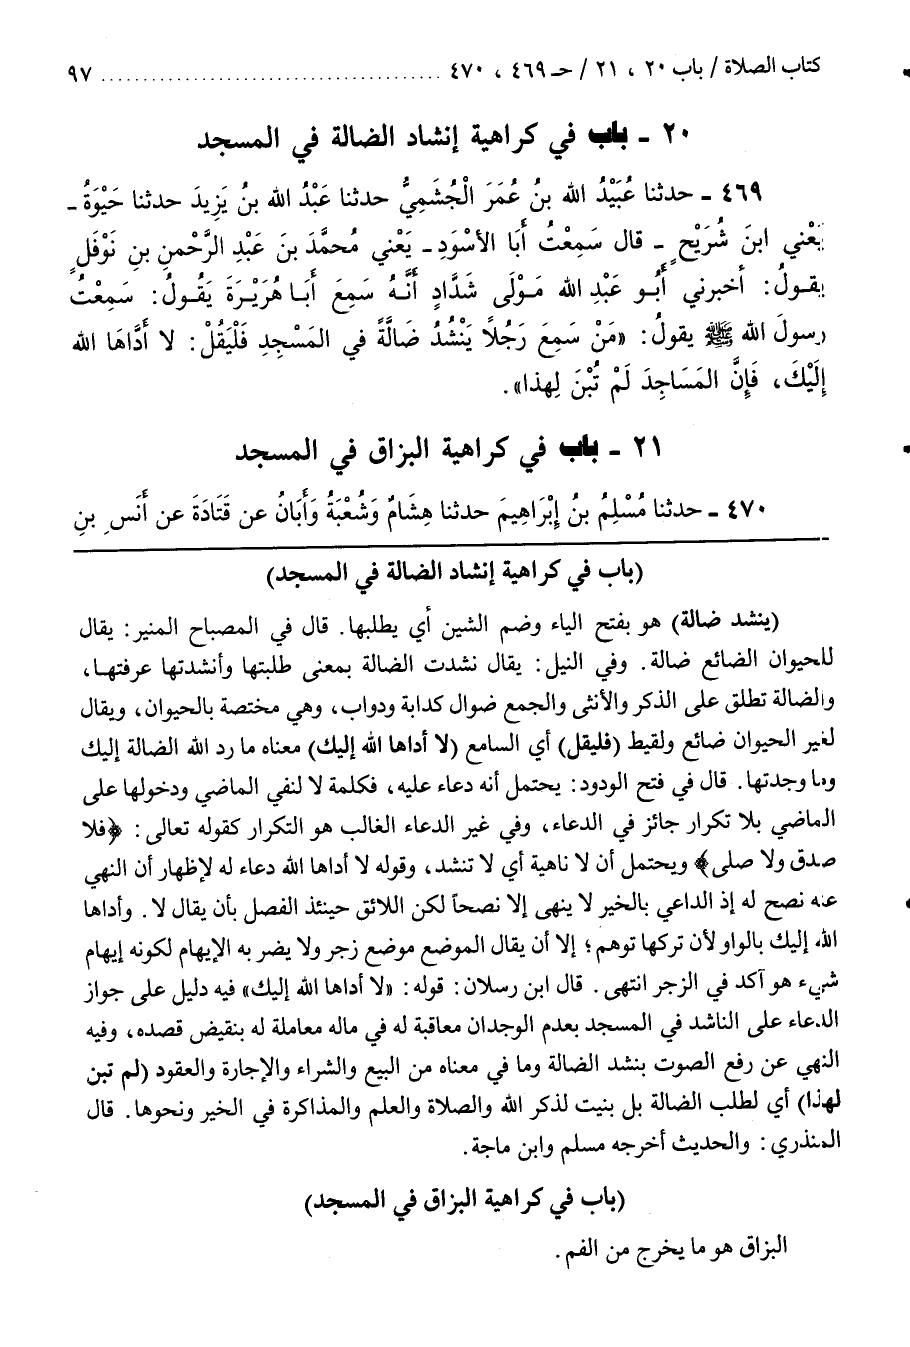 كتاب الصلاة / باب ٢٠ ، ٢١ / حـ ٤٦٩ ، ٤٧٠ ........................................ ٩٧
٢٠ ـ باب في كراهية إنشاد الضالة في المسجد
٤٦٩ ـ حدثنا عُبَيْدُ الله بنُ عُمَرَ الْجُشَمِيُّ حدثنا عَبْدُ الله بنُ يَزِيدَ حدثنا حَيْوَةُ ـ
يَعْني ابنَ شُرَيْحٍ ـ قال سَمِعْتُ أَبَا الأسْوَدِ ـ يَعْني مُحمَّدَ بنَ عَبْدِ الرَّحْمنِ بنِ نَوْفَلٍ
يقولُ: أخبرني أَبُو عَبْدِ الله مَوْلَى شَدَّادٍ أنَّهُ سَمِعَ أَبَا هُرَيْرَةَ يَقُولُ: سَمِعْتُ
رسولَ الله ﷺ يقولُ: «مَنْ سَمِعَ رَجُلاً يَنْشُدُ ضَالَّةً في المَسْجِدِ فَلْيَقُلْ: لا أَدَّاهَا الله
إِلَيْكَ، فَإِنَّ المَسَاجِدَ لَمْ تُبْنَ لِهذا».
٢١ ـ باب في كراهية البزاق في المسجد
٤٧٠ ـ حدثنا مُسْلِمُ بنُ إِبْرَاهِيمَ حدثنا هِشَامٌ وَشُعْبَةُ وَأَبَانُ عن قَتَادَةَ عن أَنَسِ بنِ
(باب في كراهية إنشاد الضالة في المسجد)
(ينشد ضالة) هو بفتح الياء وضم الشين أي يطلبها. قال في المصباح المنير: يقال
للحيوان الضائع ضالة. وفي النيل: يقال نشدت الضالة بمعنى طلبتها وأنشدتها عرفتها،
والضالة تطلق على الذكر والأنثى والجمع ضوال كدابة ودواب، وهي مختصة بالحيوان، ويقال
لغير الحيوان ضائع ولقيط (فليقل) أي السامع (لا أداها الله إليك) معناه ما رد الله الضالة إليك
وما وجدتها. قال في فتح الودود: يحتمل أنه دعاء عليه، فكلمة لا لنفي الماضي ودخولها على
الماضي بلا تكرار جائز في الدعاء، وفي غير الدعاء الغالب هو التكرار كقوله تعالى: ﴿فلا
صدق ولا صلى﴾ ويحتمل أن لا ناهية أي لا تنشد، وقوله لا أداها الله دعاء له لإظهار أن النهي
عنه نصح له إذ الداعي بالخير لا ينهى إلا نصحاً لكن اللائق حينئذ الفصل بأن يقال لا. وأداها
الله إليك بالواو لأن تركها توهم؛ إلا أن يقال الموضع موضع زجر ولا يضر به الإيهام لكونه إيهام
شيء هو آكد في الزجر انتهى. قال ابن رسلان: قوله: «لا أداها الله إليك» فيه دليل على جواز
الدعاء على الناشد في المسجد بعدم الوجدان معاقبة له في ماله معاملة له بنقيض قصده، وفيه
النهي عن رفع الصوت بنشد الضالة وما في معناه من البيع والشراء والإجارة والعقود (لم تبن
لهذا) أي لطلب الضالة بل بنيت لذكر الله والصلاة والعلم والمذاكرة في الخير ونحوها. قال
المنذري: والحديث أخرجه مسلم وابن ماجة.
(باب في كراهية البزاق في المسجد)
البزاق هو ما يخرج من الفم.